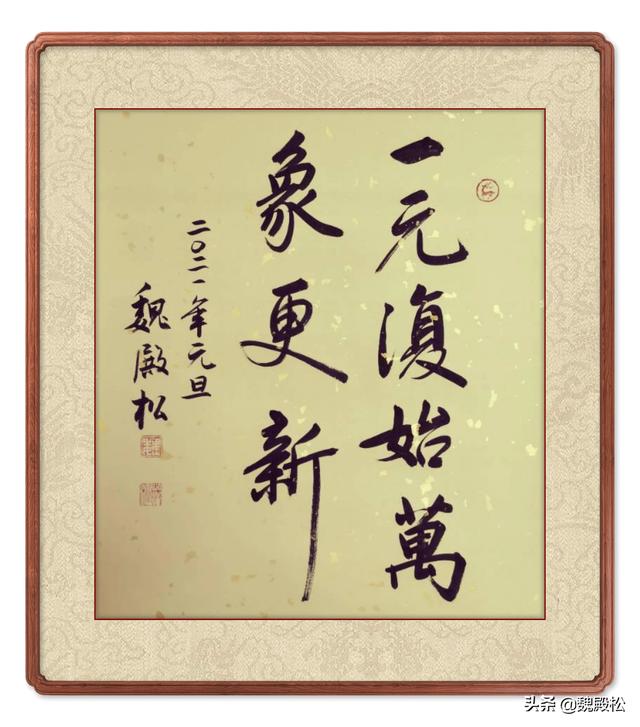 一元復始萬
象更新
二〇二一年元旦
魏殿松
头条 @魏殿松